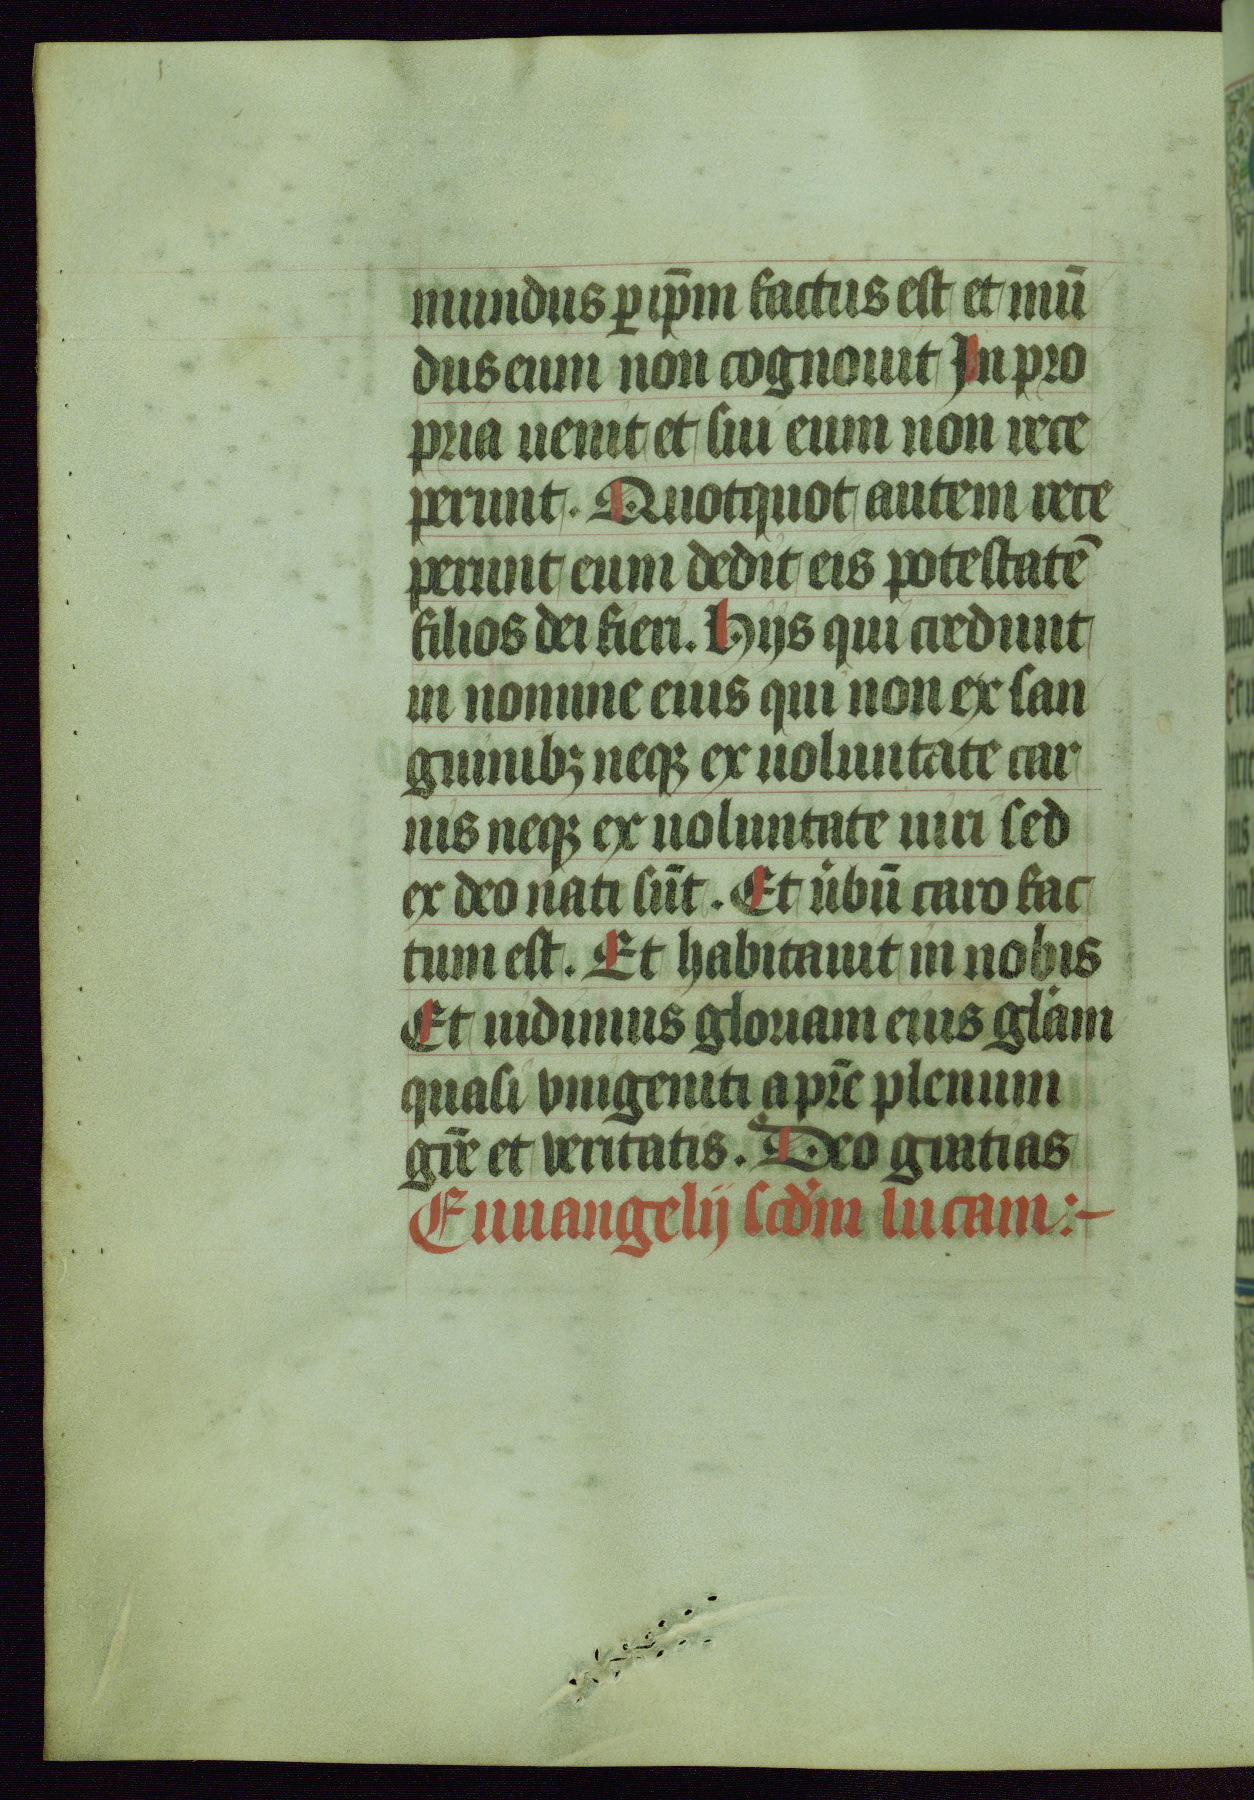 mundus ꝑ ip̄m factus est et mū
dus eum non cognouit In pro
pria uenit et sui eum non rece
perunt. Quotquot autem rece
perunt eum dedit eis potestatē
filios dei fieri. Hijs qui credunt
in nomine eius qui non ex san
guinibꝫ neqꝫ ex uoluntate car
nis neqꝫ ex uoluntate uiri sed
ex deo nati sūt. Et ůbū caro fac
tum est. Et habitauit in nobis
Et uidimus gloriam eius glām
quasi vnigeniti a pr̄e plenum
gr̄e et veritatis. Deo gratias
Euuangelij scd̄m lucam:-